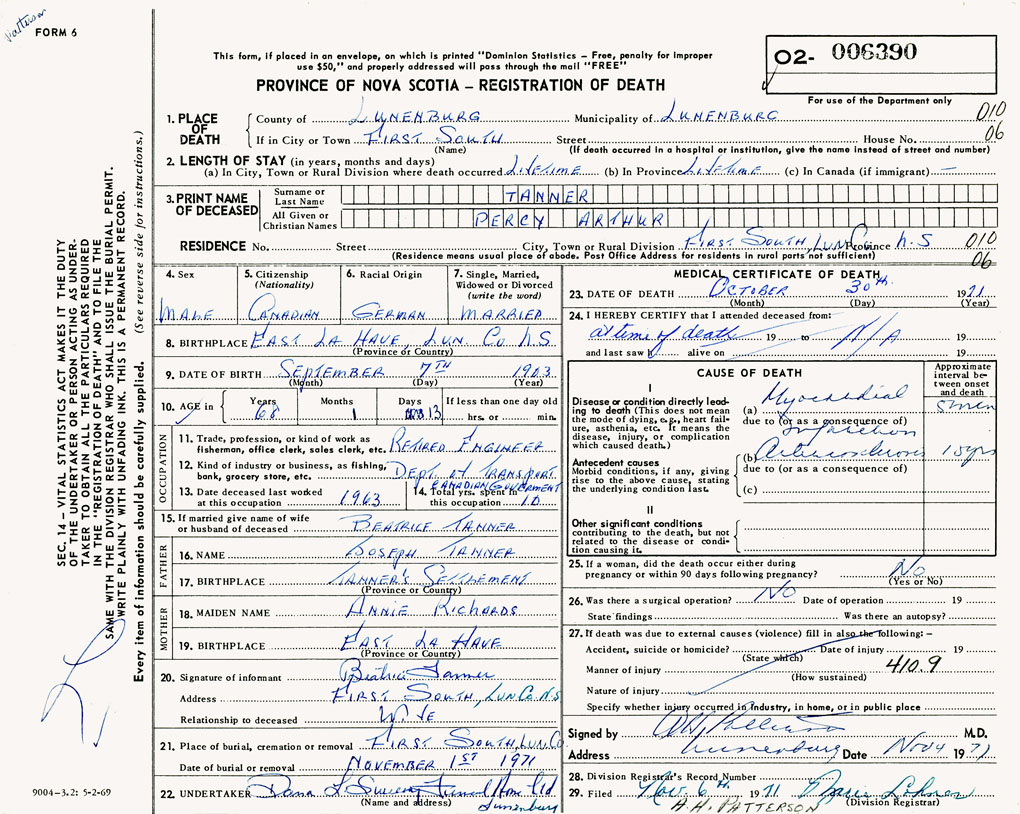 FORM 6
This form, if placed in an envelope, on which is printed "Dominion Statistics – Free, penalty for improper
use $50," and properly addressed will pass through the mail "FREE"
PROVINCE OF NOVA SCOTIA – REGISTRATION OF DEATH
O2- 006390
For use of the Department only
1. PLACE OF DEATH
County of LUNENBURG Municipality of LUNENBURG 010
If in City or Town FIRST SOUTH Street House No. 06
(Name) (If death occurred in a hospital or institution, give the name instead of street and number)
2. LENGTH OF STAY (in years, months and days)
(a) In City, Town or Rural Division where death occurred LIFETIME (b) In Province LIFETIME (c) In Canada (if immigrant) —
3. PRINT NAME OF DECEASED
Surname or Last Name TANNER
All Given or Christian Names PERCY ARTHUR
RESIDENCE No. Street City, Town or Rural Division FIRST SOUTH, LUN Co. Province N.S 010
(Residence means usual place of abode. Post Office Address for residents in rural parts not sufficient) 06
4. Sex
MALE
5. Citizenship
(Nationality)
CANADIAN
6. Racial Origin
GERMAN
7. Single, Married,
Widowed or Divorced
(write the word)
MARRIED
8. BIRTHPLACE EAST LA HAVE, LUN. CO N.S.
(Province or Country)
9. DATE OF BIRTH SEPTEMBER 7TH 1903
(Month) (Day) (Year)
10. AGE in Years 68 Months 1 Days 13 If less than one day old
hrs. or min.
OCCUPATION
11. Trade, profession, or kind of work as
fisherman, office clerk, sales clerk, etc. RETIRED ENGINEER
12. Kind of industry or business, as fishing,
bank, grocery store, etc. DEPT of TRANSPORT
CANADIAN GOVERMENT
13. Date deceased last worked
at this occupation 1963
14. Total yrs. spent in
this occupation 10
15. If married give name of wife
or husband of deceased BEATRICE TANNER
FATHER
16. NAME JOSEPH TANNER
17. BIRTHPLACE TANNER'S SETTLEMENT
(Province or Country)
MOTHER
18. MAIDEN NAME ANNIE RICHARDS
19. BIRTHPLACE EAST LA HAVE
(Province or Country)
20. Signature of informant Beatrice Tanner
Address FIRST SOUTH, LUN. Co. N.S
Relationship to deceased WIFE
21. Place of burial, cremation or removal FIRST SOUTH, LUN. Co
Date of burial or removal NOVEMBER 1ST 1971
22. UNDERTAKER Dana L Sweeny Funeral Home Ltd
(Name and address) Lunenburg
MEDICAL CERTIFICATE OF DEATH
23. DATE OF DEATH OCTOBER 30th 1971
(Month) (Day) (Year)
24. I HEREBY CERTIFY that I attended deceased from:
at time of death 19 to N/A 19
and last saw h alive on 19
CAUSE OF DEATH
Approximate interval between onset and death
I
Disease or condition directly leading to death (This does not mean the mode of dying, e.g., heart failure, asthenia, etc. It means the disease, injury, or complication which caused death.)
(a) Myocardial 5 min
due to (or as a consequence of)
Infarction
Antecedent causes
Morbid conditions, if any, giving rise to the above cause, stating the underlying condition last.
(b) Arteriosclerosis 15 yrs
due to (or as a consequence of)
(c)
II
Other significant conditions
contributing to the death, but not related to the disease or condition causing it.
25. If a woman, did the death occur either during
pregnancy or within 90 days following pregnancy? No
(Yes or No)
26. Was there a surgical operation? NO Date of operation 19
State findings Was there an autopsy?
27. If death was due to external causes (violence) fill in also the following: –
Accident, suicide or homicide? Date of injury 19
(State which)
Manner of injury 410.9
(How sustained)
Nature of injury
Specify whether injury occurred in industry, in home, or in public place
Signed by M.D.
Address Lunenburg Date Nov 4 1971
28. Division Registrar's Record Number
29. Filed Nov. 6th 1971
(Division Registrar)
A.H. PATTERSON
SEC. 14 – VITAL STATISTICS ACT MAKES IT THE DUTY
OF THE UNDERTAKER OR PERSON ACTING AS UNDERTAKER TO OBTAIN ALL THE PARTICULARS REQUIRED
IN THE "REGISTRATION OF DEATH" AND TO FILE THE
SAME WITH THE DIVISION REGISTRAR WHO SHALL ISSUE THE BURIAL PERMIT.
WRITE PLAINLY WITH UNFADING INK. THIS IS A PERMANENT RECORD.
Every item of information should be carefully supplied. (See reverse side for instructions.)
9004-3.2: 5-2-69